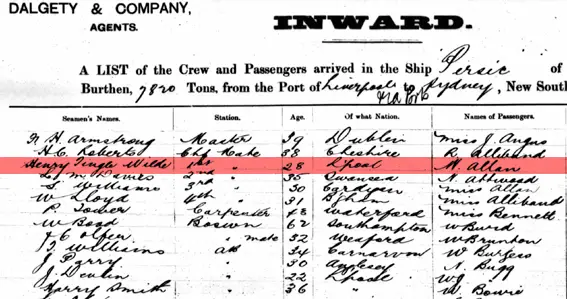 DALGETY & COMPANY,
AGENTS.
INWARD.
A LIST of the Crew and Passengers arrived in the Ship Persic of
Burthen, 7820 Tons, from the Port of Liverpool to Sydney, New Sout
Seamen's Names. Station. Age. Of what Nation. Names of Passengers.
H. Armstrong Master 39 Dublin Miss J. Angus
H. C. Roberts Chf Mate 38 Cheshire R. Alliband
Henry Tingle Wilde 1st " 28 L'pool M. Allan
Davies 2nd " 35 Swansea Attwood
S. Williams 3rd " 30 Cardigan Miss Allan
W Lloyd 4th " 31 Miss Alliband
P. Tower Carpenter 48 Waterford Miss Bennett
W Bood Boswn 62 Southampton W Burd
" mate 32 Wexford W Brunton
Williams AB 34 Carnarvon W Burgess
J. Parry " 30 Bugg
J. Devlin " 22 L'pool
Harry Smith " 36 " W. Bowie